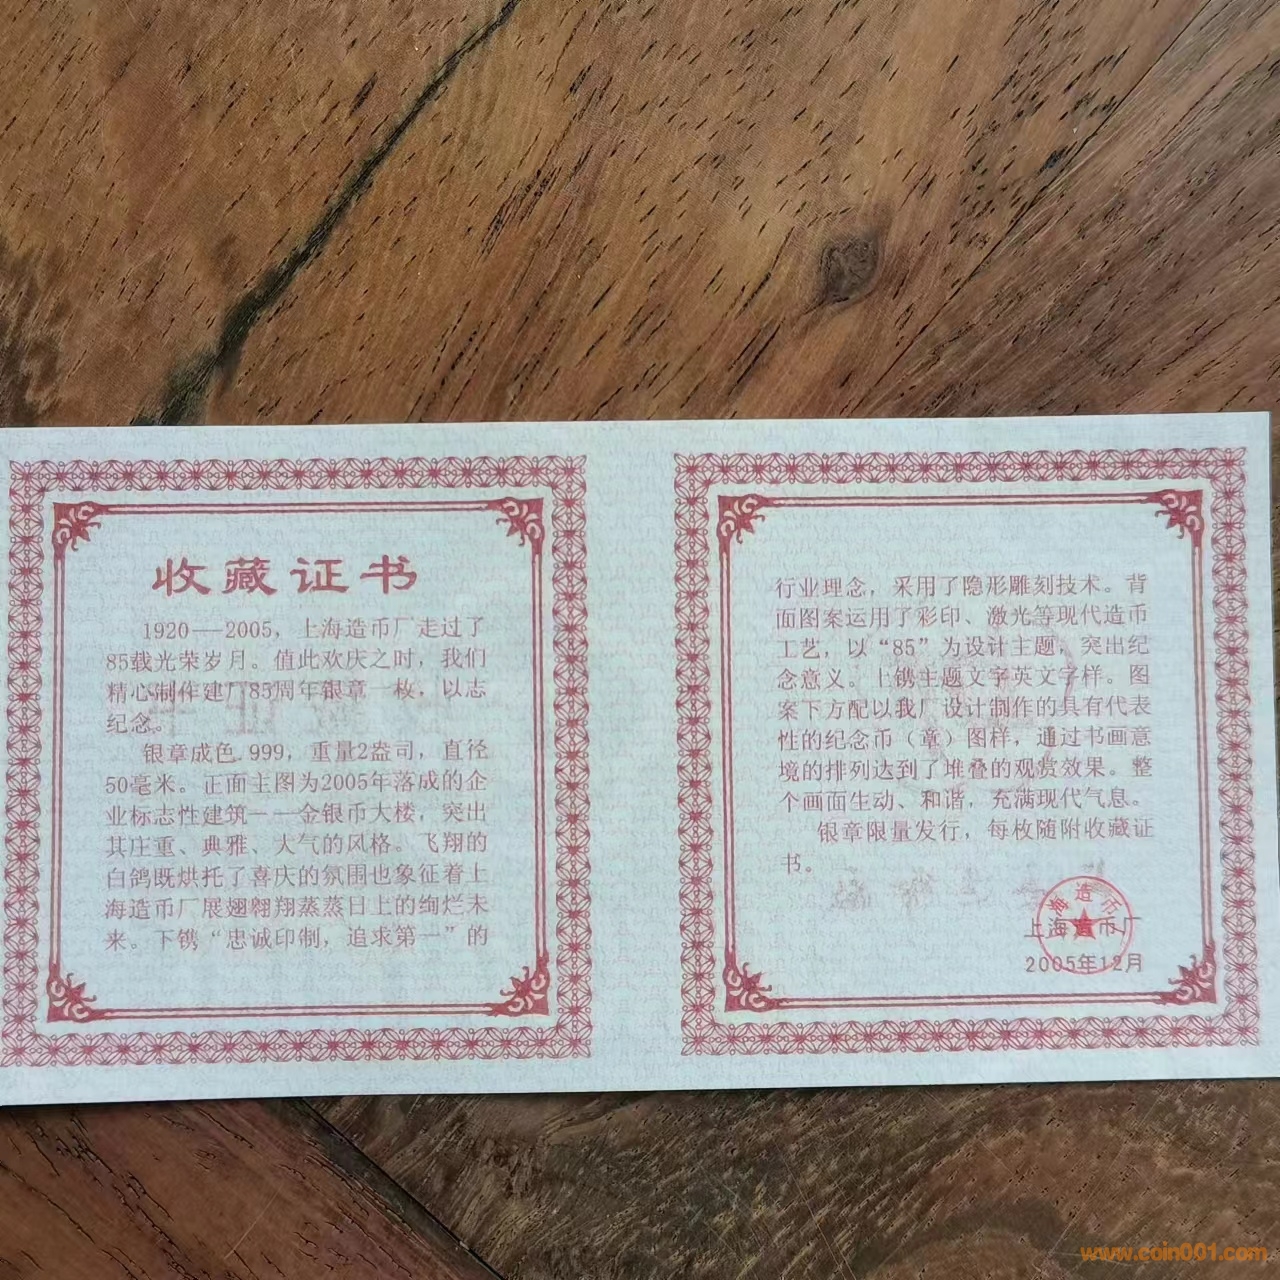 收藏证书
1920——2005，上海造币厂走过了
85载光荣岁月。值此欢庆之时，我们
精心制作建厂85周年银章一枚，以志
纪念。
银章成色.999，重量2盎司，直径
50毫米。正面主图为2005年落成的企
业标志性建筑——金银币大楼，突出
其庄重、典雅、大气的风格。飞翔的
白鸽既烘托了喜庆的氛围也象征着上
海造币厂展翅翱翔蒸蒸日上的绚烂未
来。下镌“忠诚印制，追求第一”的
行业理念，采用了隐形雕刻技术。背
面图案运用了彩印、激光等现代造币
工艺，以“85”为设计主题，突出纪
念意义。上镌主题文字英文字样。图
案下方配以我厂设计制作的具有代表
性的纪念币（章）图样，通过书画意
境的排列达到了堆叠的观赏效果。整
个画面生动、和谐，充满现代气息。
银章限量发行，每枚随附收藏证
书。
上海造币厂
2005年12月
www.coin001.com